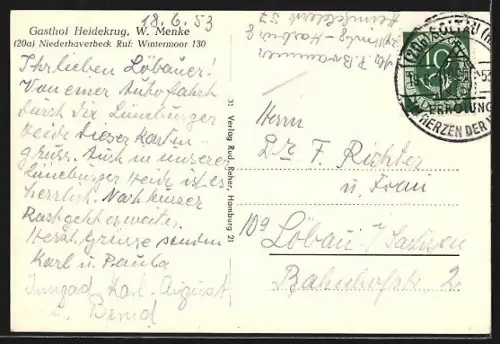 18.6.53
Gasthof Heidekrug, W. Menke
(20a) Niederhaverbeck Ruf: Wintermoor 130
Ihr lieben Löbauer!
Von einer Autofahrt
durch die Lüneburger
Heide diesen Karten-
gruss. Auch in unserer
Lüneburger Heide ist es
herrlich. Nach kurzer
Rast geht es weiter.
Herzl. Grüsse senden
Karl u. Paula
Irmgad Karl-August
u. Bernd
31 Verlag Rud. Reher, Hamburg 21
P.
Hamburg
57
(20a) SOLTAU
ERHOLUNG
HERZEN DER
Herrn
Dr. F. Richter
u. Frau
10a Löbau / Sachsen
Bahnhofstr. 2